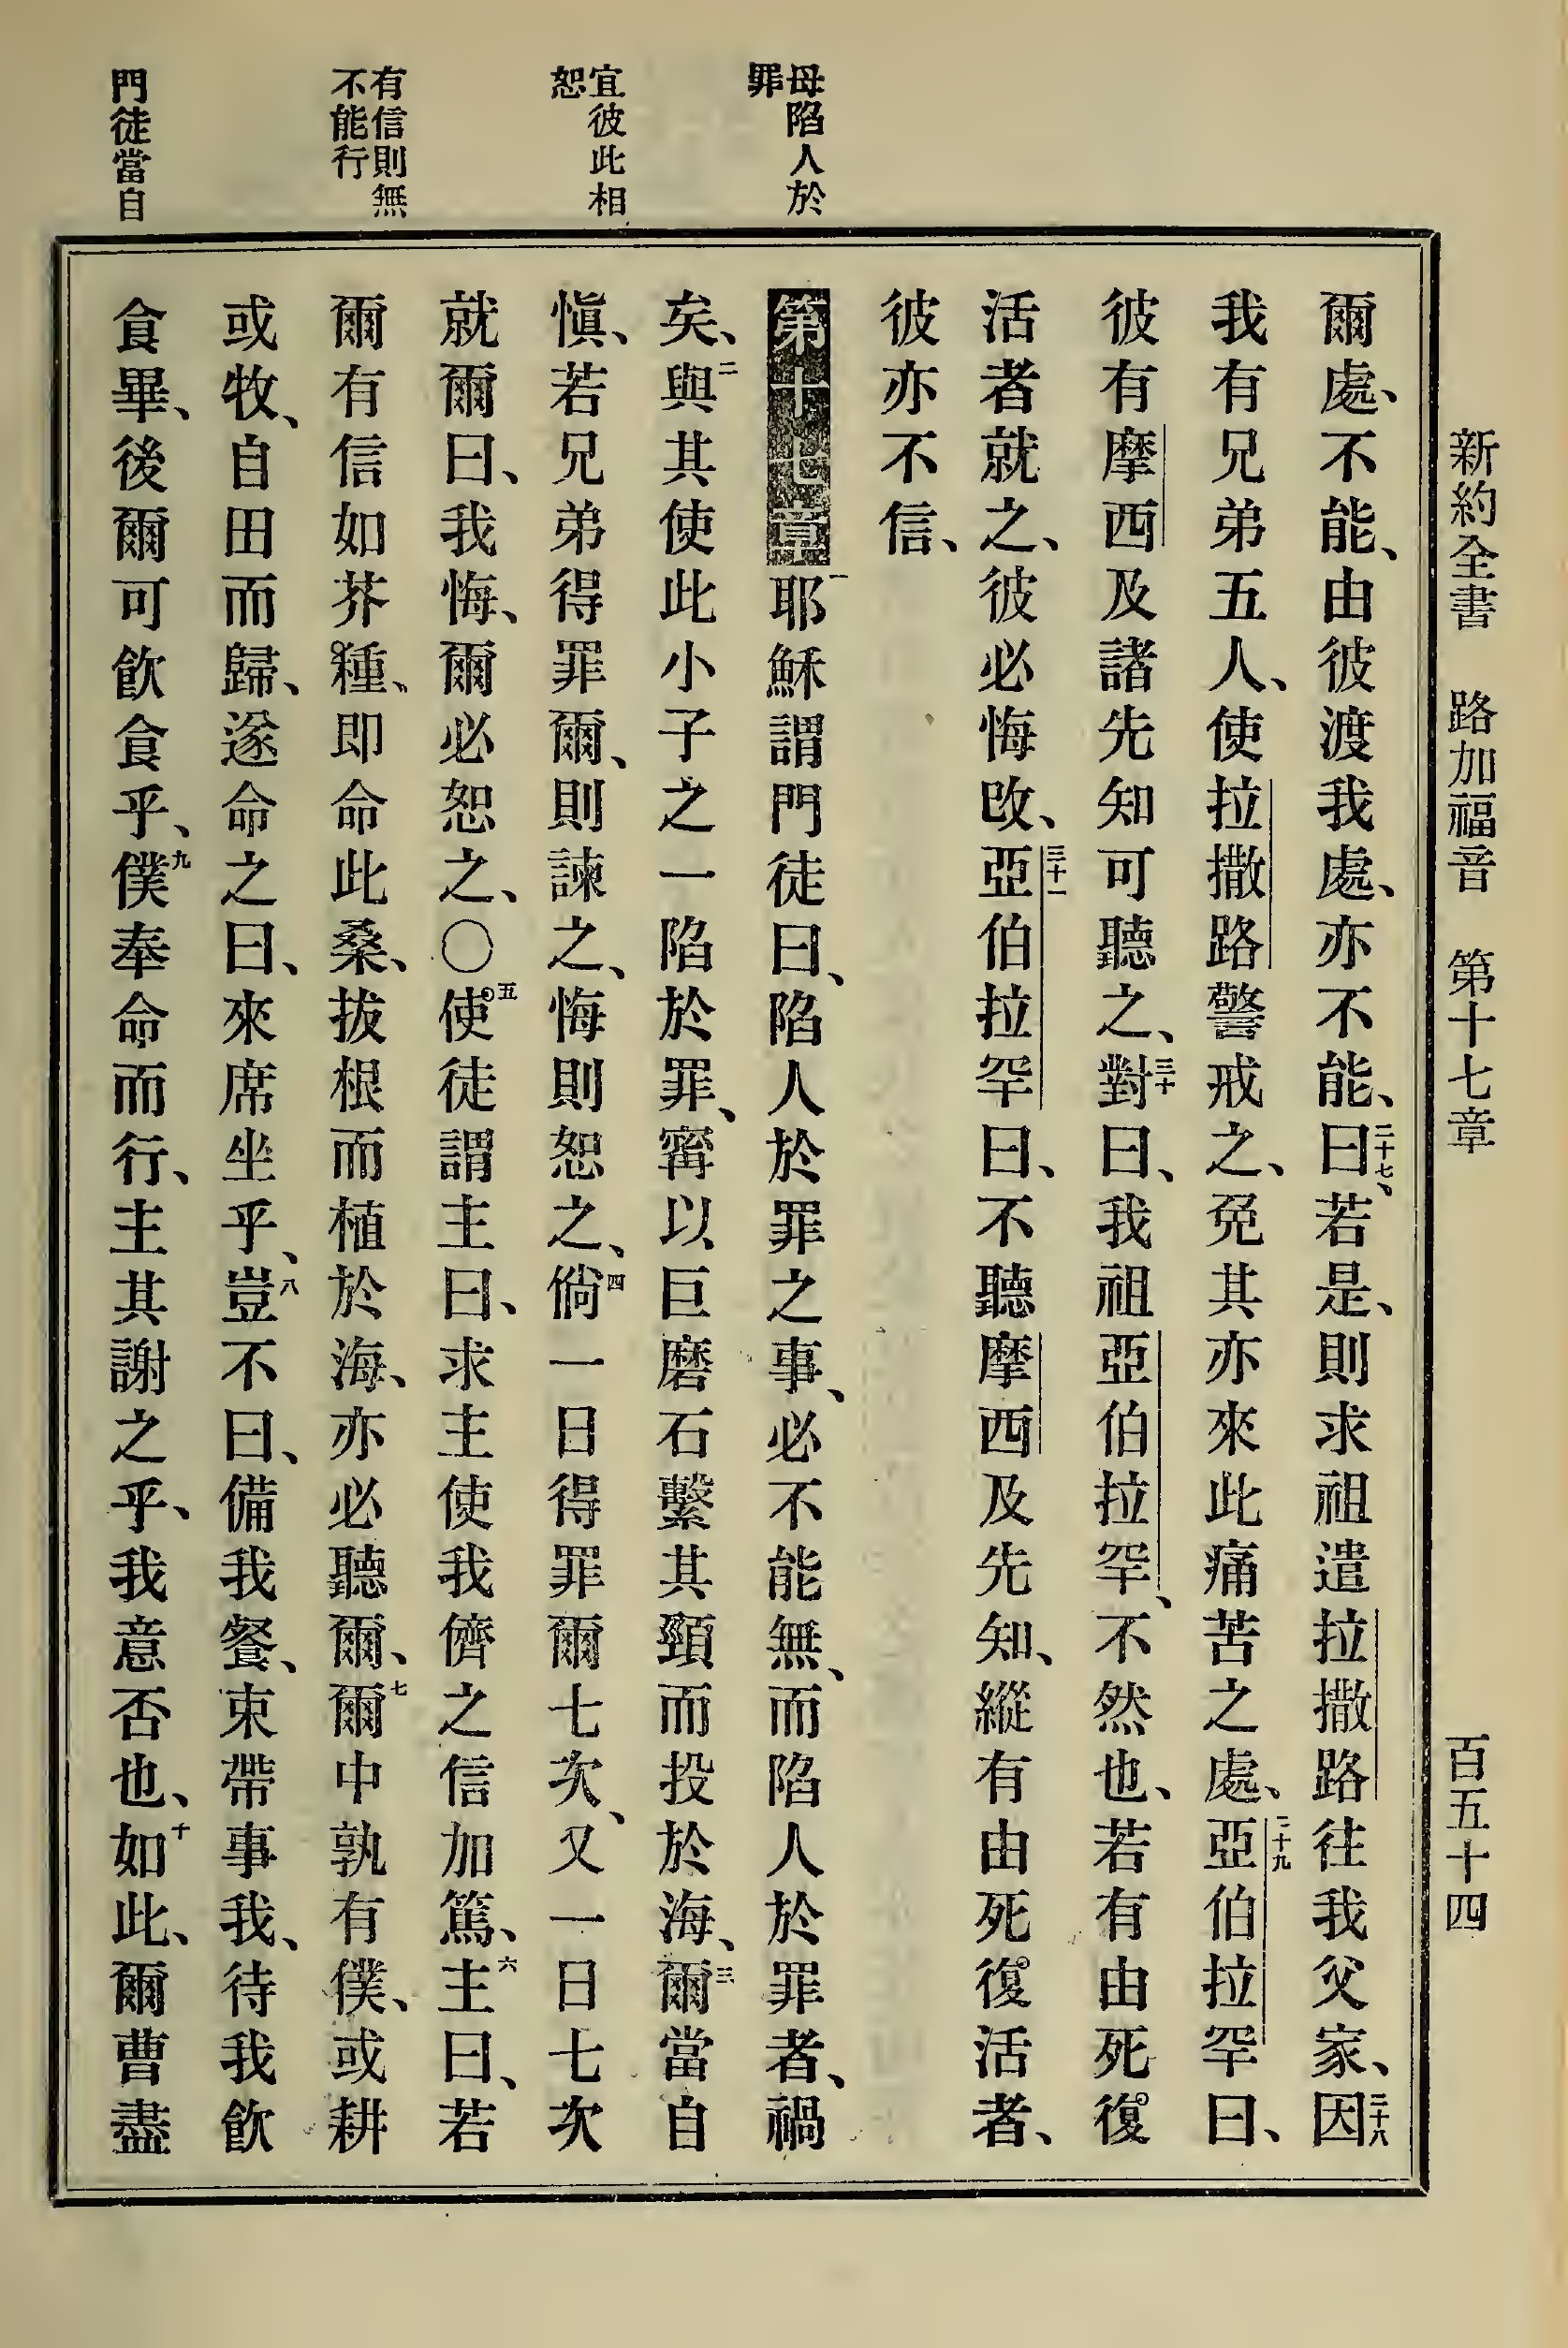 新約全書 路加福音 第十七章 百五十四
爾處、不能、由彼渡我處、亦不能、二十七曰、若是、則求祖遣拉撒路往我父家、二十八因
我有兄弟五人、使拉撒路警戒之、免其亦來此痛苦之處、二十九亞伯拉罕曰、
彼有摩西及諸先知可聽之、三十對曰、我祖亞伯拉罕、不然也、若有由死復
活者就之、彼必悔改、三十一亞伯拉罕曰、不聽摩西及先知、縱有由死復活者、
彼亦不信、
母陷人於
罪
第十七章一耶穌謂門徒曰、陷人於罪之事、必不能無、而陷人於罪者、禍
矣、二與其使此小子之一陷於罪、寗以巨磨石繫其頸而投於海、三爾當自
宜彼此相
恕
愼、若兄弟得罪爾、則諫之、悔則恕之、四倘一日得罪爾七次、又一日七次
就爾曰、我悔、爾必恕之、〇五使徒謂主曰、求主使我儕之信加篤、六主曰、若
有信則無
不能行
爾有信如芥種、即命此桑、拔根而植於海、亦必聽爾、七爾中孰有僕、或耕
或牧、自田而歸、遂命之曰、來席坐乎、八豈不曰、備我餐、束帶事我、待我飲
門徒當自
食畢、後爾可飲食乎、九僕奉命而行、主其謝之乎、我意否也、十如此、爾曹盡